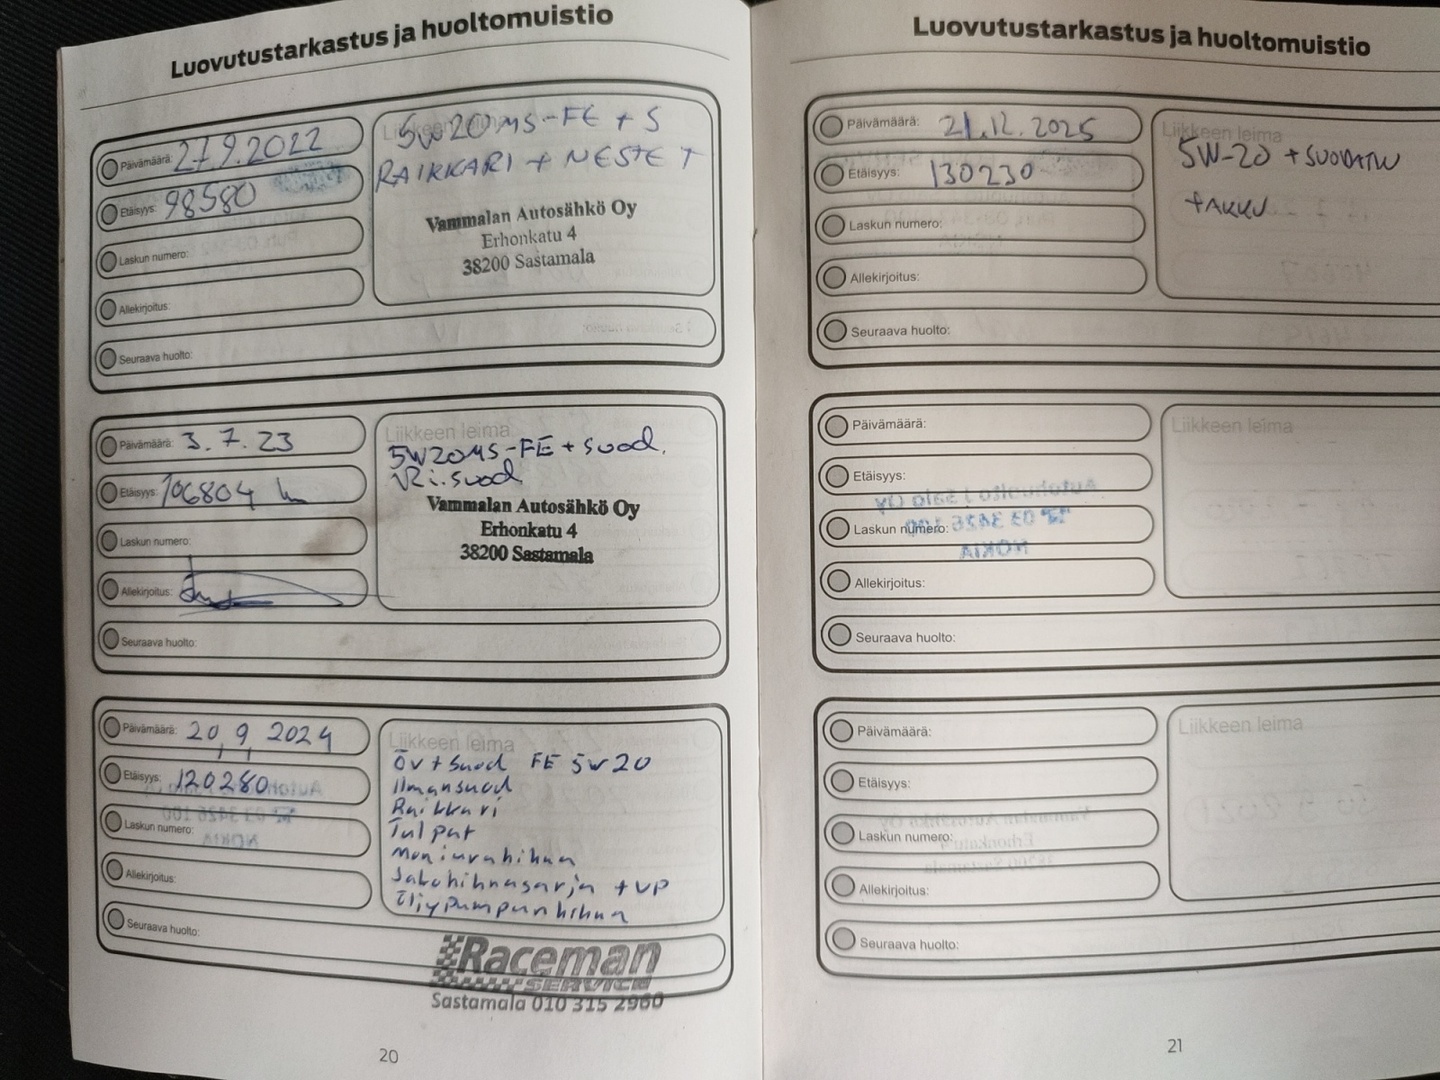 Luovutustarkastus ja huoltomuistio
Päivämäärä: 27.9.2022
Etäisyys: 98580
Laskun numero:
Allekirjoitus:
Seuraava huolto:
Liikkeen leima
5W20 MS-FE + S
RAIKKARI + NESTE T
Vammalan Autosähkö Oy
Erhonkatu 4
38200 Sastamala
Päivämäärä: 3.7.23
Etäisyys: 106804
Laskun numero:
Allekirjoitus:
Seuraava huolto:
Liikkeen leima
5W20MS-FE + Suod.
Ri.suod
Vammalan Autosähkö Oy
Erhonkatu 4
38200 Sastamala
Päivämäärä: 20,9,2024
Etäisyys: 120280
Laskun numero:
Allekirjoitus:
Seuraava huolto:
Liikkeen leima
öv + Suod FE 5w20
ilmansuod
Raikkari
Tulpat
moniurahihna
Jakohihnasarja + VP
Öljypumpunhihna
Raceman
SERVICE
Sastamala 010 315 2960
20
Luovutustarkastus ja huoltomuistio
Päivämäärä: 21.12.2025
Etäisyys: 130230
Laskun numero:
Allekirjoitus:
Seuraava huolto:
Liikkeen leima
5W-20 + SUODATIN
+AKKU
Päivämäärä:
Etäisyys:
Laskun numero:
Allekirjoitus:
Seuraava huolto:
Liikkeen leima
Päivämäärä:
Etäisyys:
Laskun numero:
Allekirjoitus:
Seuraava huolto:
Liikkeen leima
21